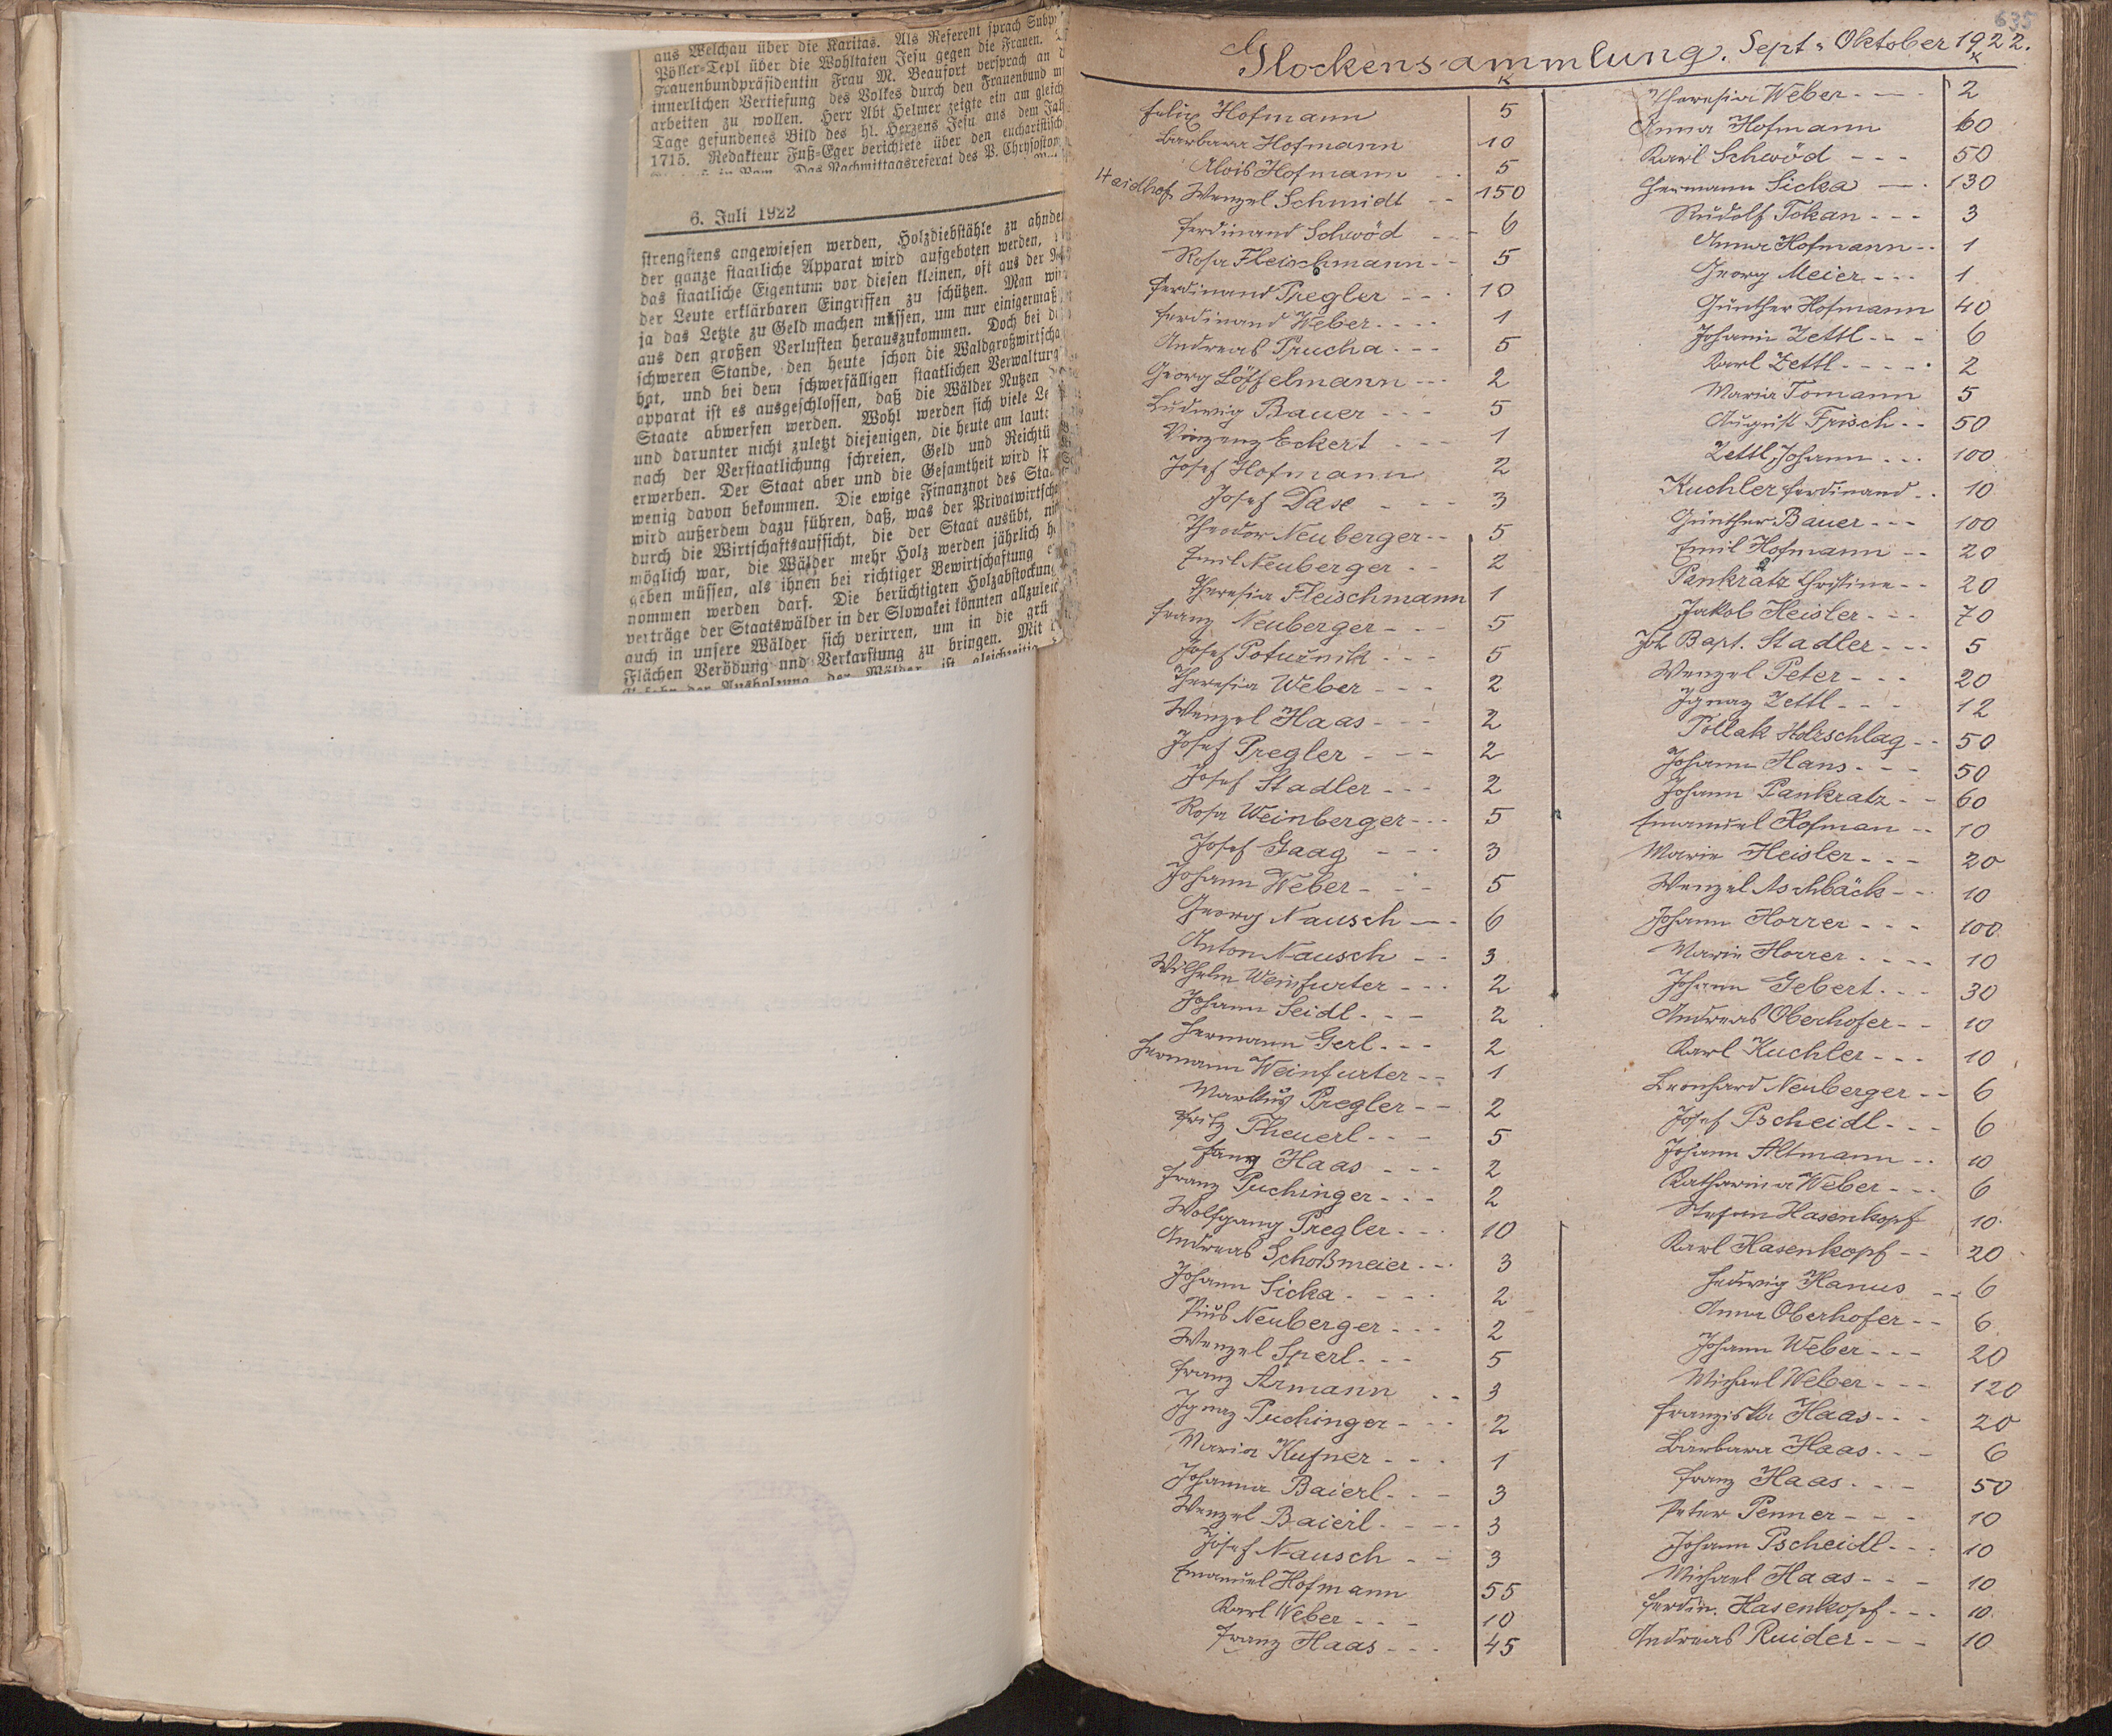 aus Welchau über die Karitas. Als Referent sprach Subpr
Pöller=Tepl über die Wohltaten Jesu gegen die Frauen.
Frauenbundpräsidentin Frau M. Beaufort versprach an d
innerlichen Vertiefung des Volkes durch den Frauenbund m
arbeiten zu wollen. Herr Abt Helmer zeigte ein am gleich
Tage gefundenes Bild des hl. Herzens Jesu aus dem Jah
1715. Redakteur Fuß=Eger berichtete über den eucharistisch
in Rom. Das Nachmittagsreferat des P. Chrysostom
6. Juli 1922
strengstens angewiesen werden, Holzdiebstähle zu ahnde
der ganze staatliche Apparat wird aufgeboten werden,
das staatliche Eigentum vor diesen kleinen, oft aus der
der Leute erklärbaren Eingriffen zu schützen. Man wir
ja das Letzte zu Geld machen müssen, um nur einigermaß
aus den großen Verlusten herauszukommen. Doch bei de
schweren Stande, den heute schon die Waldgroßwirtscha
hat, und bei dem schwerfälligen staatlichen Verwaltung
apparat ist es ausgeschlossen, daß die Wälder Nutzen
Staate abwerfen werden. Wohl werden sich viele Le
und darunter nicht zuletzt diejenigen, die heute am laute
nach der Verstaatlichung schreien, Geld und Reichtü
erwerben. Der Staat aber und die Gesamtheit wird
wenig davon bekommen. Die ewige Finanznot des Sta
wird außerdem dazu führen, daß, was der Privatwirtsch
durch die Wirtschaftsaufsicht, die der Staat ausübt, ni
möglich war, die Wälder mehr Holz werden jährlich h
geben müssen, als ihnen bei richtiger Bewirtschaftung
nommen werden darf. Die berüchtigten Holzabstockung
verträge der Staatswälder in der Slowakei könnten allzuleic
auch in unsere Wälder sich verirren, um in die grü
Flächen Verödung und Verkarstung zu bringen. Mit
der Ausholzung der Wälder ist gleichzeitig
635
Glockensammlung. Sept. Oktober 1922.
K
Felix Hofmann 5
Barbara Hofmann 10
Alois Hofmann 5
Haidhof Wenzel Schmidt 150
Ferdinand Schwöd 6
Rosa Fleischmann 5
Ferdinand Pregler 10
Ferdinand Weber 1
Andreas Prucha 5
Georg Löffelmann 2
Ludwig Bauer 5
Vinzenz Eckert 1
Josef Hofmann 2
Josef Dase 3
Theodor Neuberger 5
Emil Neuberger 2
Theresia Fleischmann 1
Franz Neuberger 5
Josef Poturnik 5
Theresia Weber 2
Wenzel Haas 2
Josef Pregler 2
Josef Stadler 2
Rosa Weinberger 5
Josef Gaag 3
Johann Weber 5
Georg Nausch 6
Anton Nausch 3
Wilhelm Weinfurter 2
Johann Seidl 2
Hermann Gerl 2
Hermann Weinfurter 1
Markus Pregler 2
Fritz Theuerl 5
Fanny Haas 2
Franz Puchinger 2
Wolfgang Pregler 10
Andreas Schoßmeier 3
Johann Sicka 2
Pius Neuberger 2
Wenzel Sperl 5
Franz Armann 3
Ignaz Puchinger 2
Maria Kufner 1
Johanna Baierl 3
Wenzel Baierl 3
Josef Nausch 3
Emanuel Hofmann 55
Karl Weber 10
Franz Haas 45
K
Theresia Weber 2
Anna Hofmann 60
Karl Schwöd 50
Hermann Sicka 130
Rudolf Tokan 3
Anna Hofmann 1
Georg Meier 1
Günther Hofmann 40
Johann Zettl 6
Karl Zettl 2
Maria Tomann 5
August Frisch 50
Zettl Johann 100
Kuchler Ferdinand 10
Günther Bauer 100
Emil Hofmann 20
Pankratz Christine 20
Jakob Heisler 70
Joh Bapt. Stadler 5
Wenzel Peter 20
Ignaz Zettl 12
Pollak Holzschlag 50
Johann Hans 50
Johann Pankratz 60
Emanuel Hofman 10
Marie Heisler 20
Wenzel Aschbäck 10
Johann Horrer 100
Marie Horrer 10
Johann Gebert 30
Andreas Oberhofer 10
Karl Kuchler 10
Leonhard Neuberger 6
Josef Pscheidl 6
Johann Altmann 10
Katharina Weber 6
Stefan Hasenkopf 10
Karl Hasenkopf 20
Hedwig Hanus 6
Anna Oberhofer 6
Johann Weber 20
Michael Weber 120
Franziska Haas 20
Barbara Haas 6
Franz Haas 50
Peter Penner 10
Johann Pscheidl 10
Michael Haas 10
Ferdin. Hasenkopf 10
Andreas Ruider 10